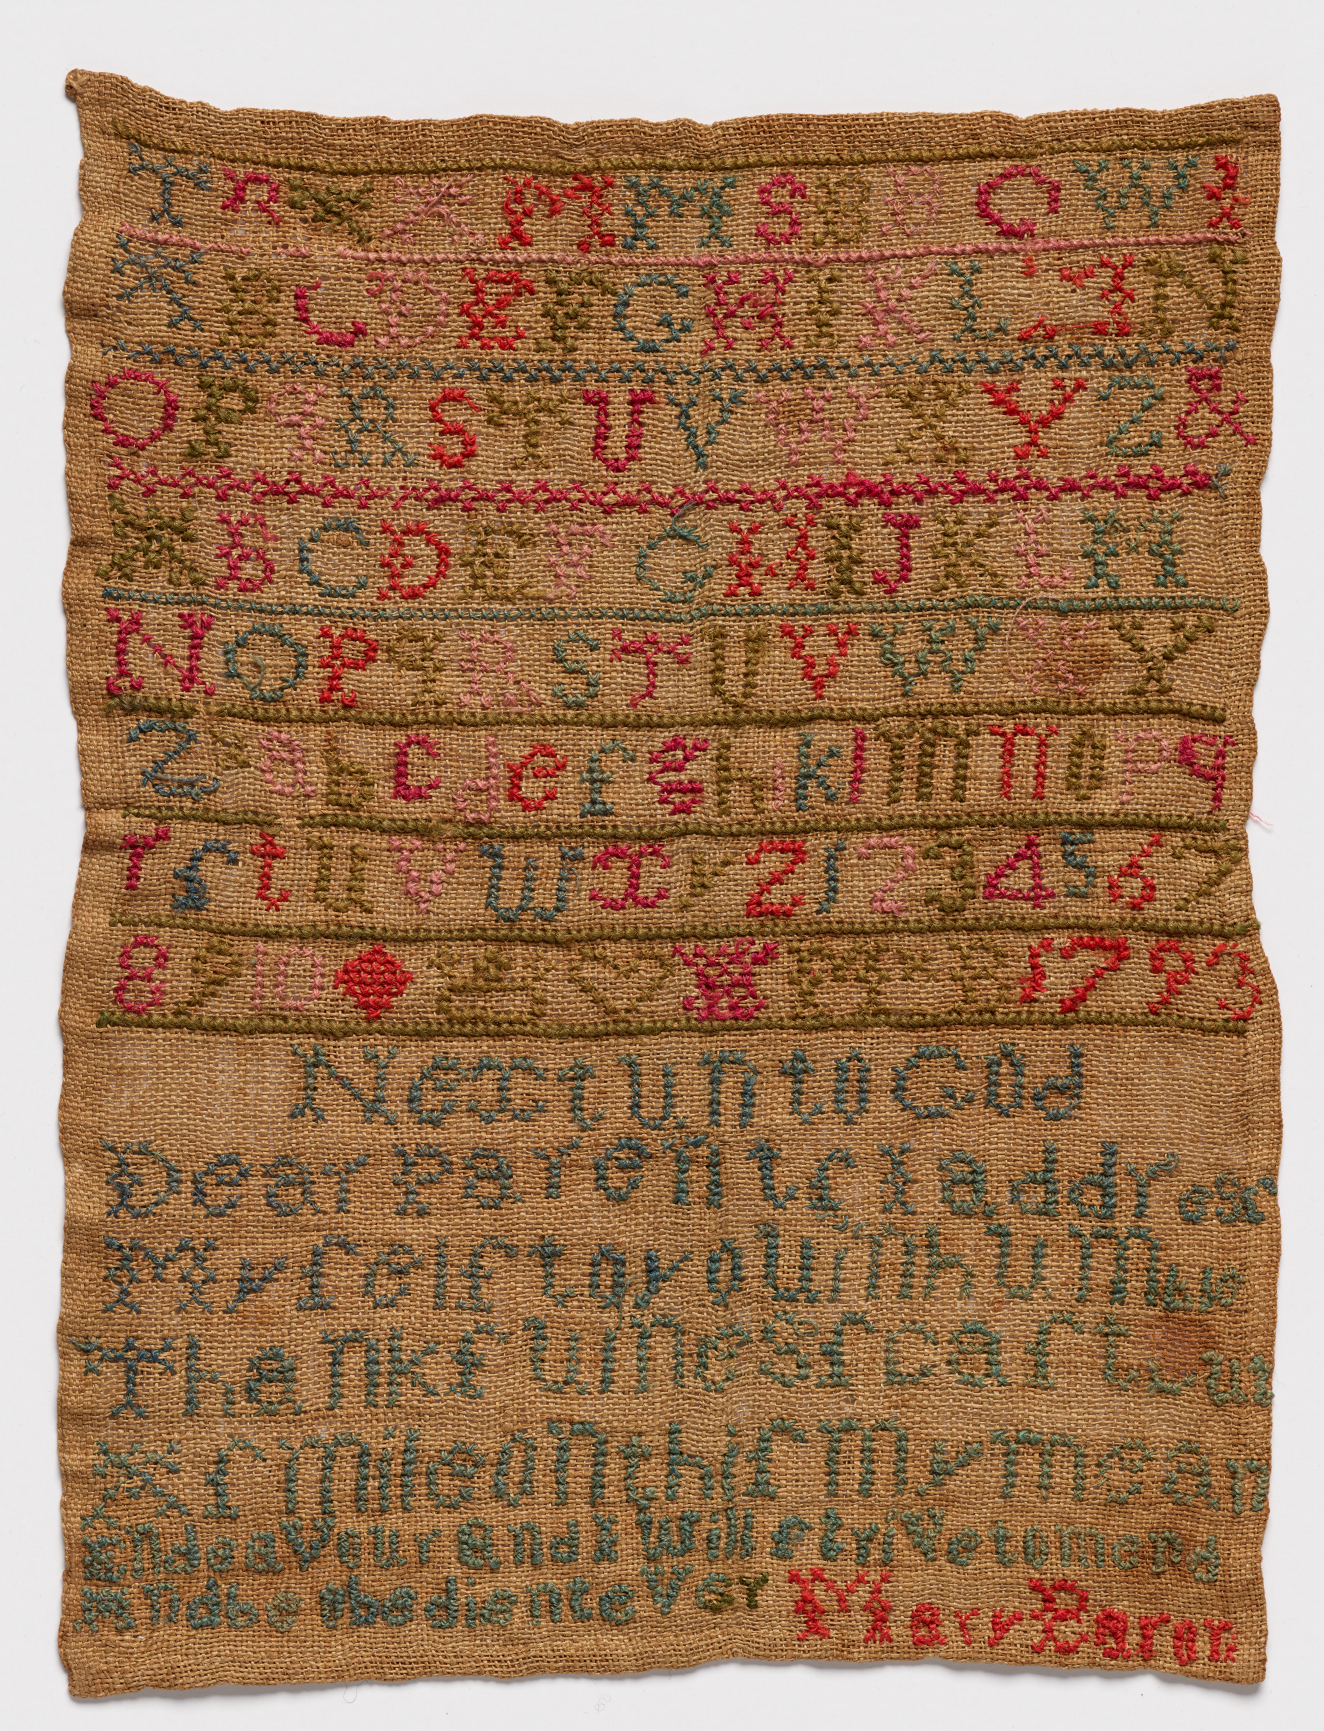 T R X X M M S B B C W
A B C D E F G H I K L M N
O P q R S T U V W X Y Z &
A B C D E F G H I J K L M
N O P q R S T U V W X Y
Z a b c d e f g h i k l m n o p q
r ſ t u v w x y z 1 2 3 4 5 6 7
8 9 10 1793
Next unto God
Dear Parentſ I addreſſ
Myſelf to you in humble
Thankfulnesſ caſt
A ſmile on thiſ my mean
Endeavour and I Will strive to mend
And be obedient ever Mary Baron